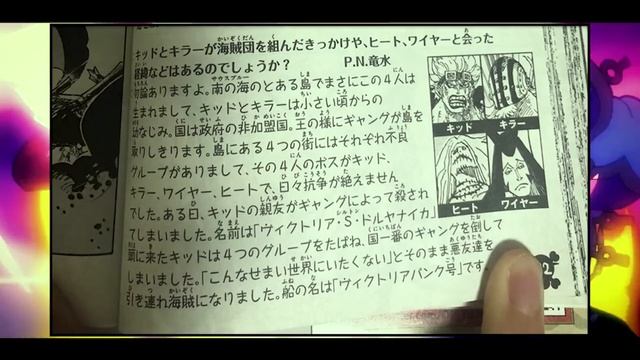 キッドとキラーが海賊団を組んだきっかけや、ヒート、ワイヤーと会った
経緯などはあるのでしょうか? P.N.竜水
勿論ありますよ。南の海のとある島でまさにこの4人は
生まれまして、キッドとキラーは小さい頃からの
幼なじみ。国は政府の非加盟国。王の様にギャングが島を
取りしきります。島にある4つの街にはそれぞれ不良
グループがありまして、その4人のボスがキッド、
キラー、ワイヤー、ヒートで、日々抗争が絶えません
でした。ある日、キッドの親友がギャングによって殺され
てしまいました。名前は「ヴィクトリア・S・ドルヤナイカ」
頭に来たキッドは4つのグループをたばね、国一番のギャングを倒して
しまいました。「こんなせまい世界にいたくない」とそのまま悪友達を
引き連れ海賊になりました。船の名は「ヴィクトリアパンク号」です
キッド
キラー
ヒート
ワイヤー